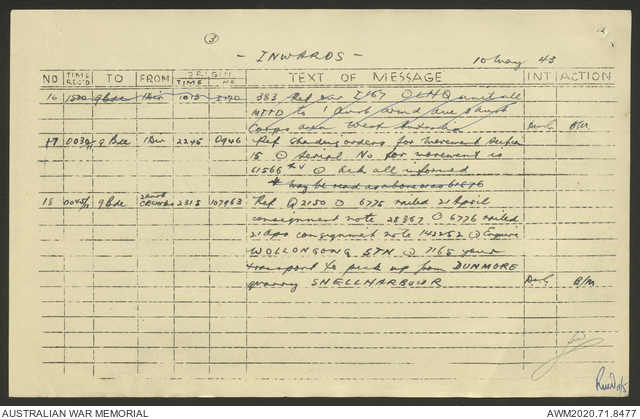 ③
- INWARDS - 10 May 43
NO TIME REC'D TO FROM ORIGIN TIME NO TEXT OF MESSAGE INT ACTION
16 1500 9 Bde 1 Div 1015 383 Ref our I167 O LHQ unit all
MTTD to 1 Aust
Corps area West Australia B/M
17 9 Bde 1 Div 2245 0946 Ref standing orders for movement
15 O Serial No for movement is
61566 O Ack all informed
* may be read as above was 61676
18 9 Bde 2315 107963 Ref Q2150 O 6775 railed 21 April
consignment note 28367 O 6776 railed
21 Apr consignment note 142252 O Enquire
WOLLONGONG STN O 7165 your
transport to pick up from DUNMORE
quarry SHELLHARBOUR B/M
AUSTRALIAN WAR MEMORIAL AWM2020.71.8477